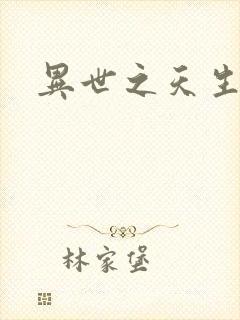 異世之天生
林家堡